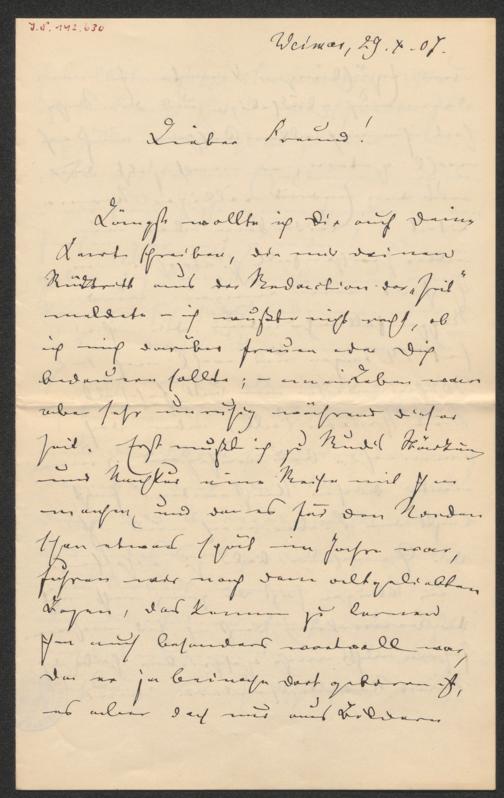 J.N. 142.630
Weimar, 29. X. 07.
Lieber Freund!
Längst wollte ich Dir auf Deine
Karte schreiben, die mir deinen
Rücktritt aus der Redaction der „Zeit“
meldete – ich wußte nicht recht, ob
ich mich darüber freuen oder Dich
bedauern sollte; – mein Leben war
aber sehr unruhig während dieser
Zeit. Erst mußte ich zu Rudis Stärkung
und Nachkur eine Reise mit ihm
machen, und da es für den Norden
schon etwas spät im Jahre war,
fuhren wir nach dem altgeliebten
Bozen, das kennen zu lernen
ihm auch besonders wertvoll war,
da er ja beinahe dort geboren ist,
es aber doch nur aus Bildern